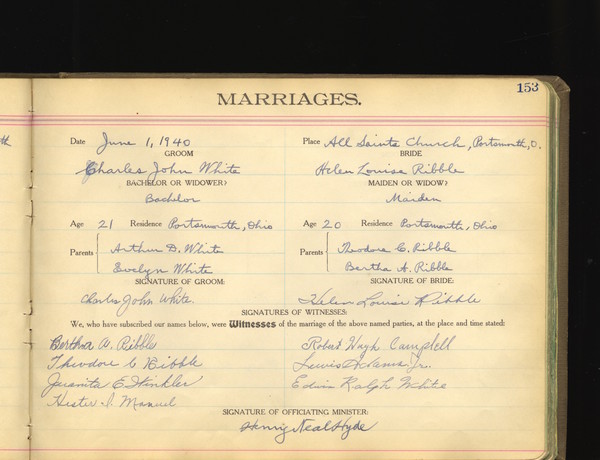 153
MARRIAGES.
th
Date June 1, 1940 Place All Saints Church, Portsmouth, O.
GROOM BRIDE
Charles John White Helen Louise Ribble
BACHELOR OR WIDOWER? MAIDEN OR WIDOW?
Bachelor Maiden
Age 21 Residence Portsmouth, Ohio Age 20 Residence Portsmouth, Ohio
Parents Arthur D. White Parents Theodore C. Ribble
Evelyn White Bertha A. Ribble
SIGNATURE OF GROOM: SIGNATURE OF BRIDE:
Charles John White. Helen Louise Ribble
SIGNATURES OF WITNESSES:
We, who have subscribed our names below, were Witnesses of the marriage of the above named parties, at the place and time stated:
Bertha A. Ribble Robert Waugh Campbell
Theodore C Ribble Lewis Adams Jr.
Juanita E Winkler Edwin Ralph White
Hester I. Manuel
SIGNATURE OF OFFICIATING MINISTER:
Henry Neal Hyde